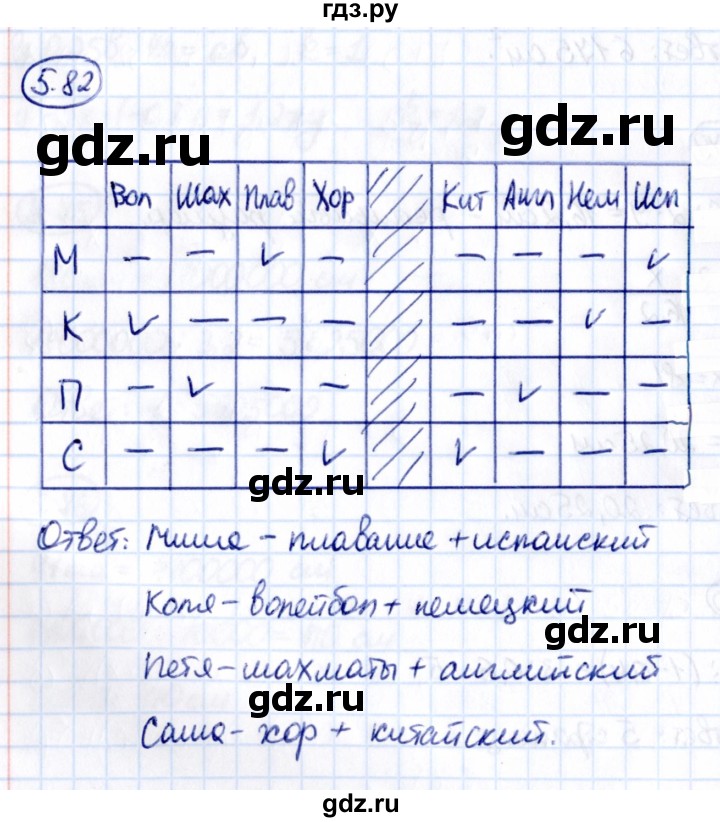 гдз.ру
5.82
gdz.ru
gdz.ru
Вол Шах Плав Хор Кит Англ Нем Исп
М – – ✓ – – – – ✓
К ✓ – – – – – ✓ –
П – ✓ – – – ✓ – –
С – – – ✓ ✓ – – –
gdz.ru
gdz.ru
Ответ: Миша – плавание + испанский
Коля – волейбол + немецкий
gdz.ru
Петя – шахматы + английский
gdz.ru
Саша – хор + китайский.
gdz.ru